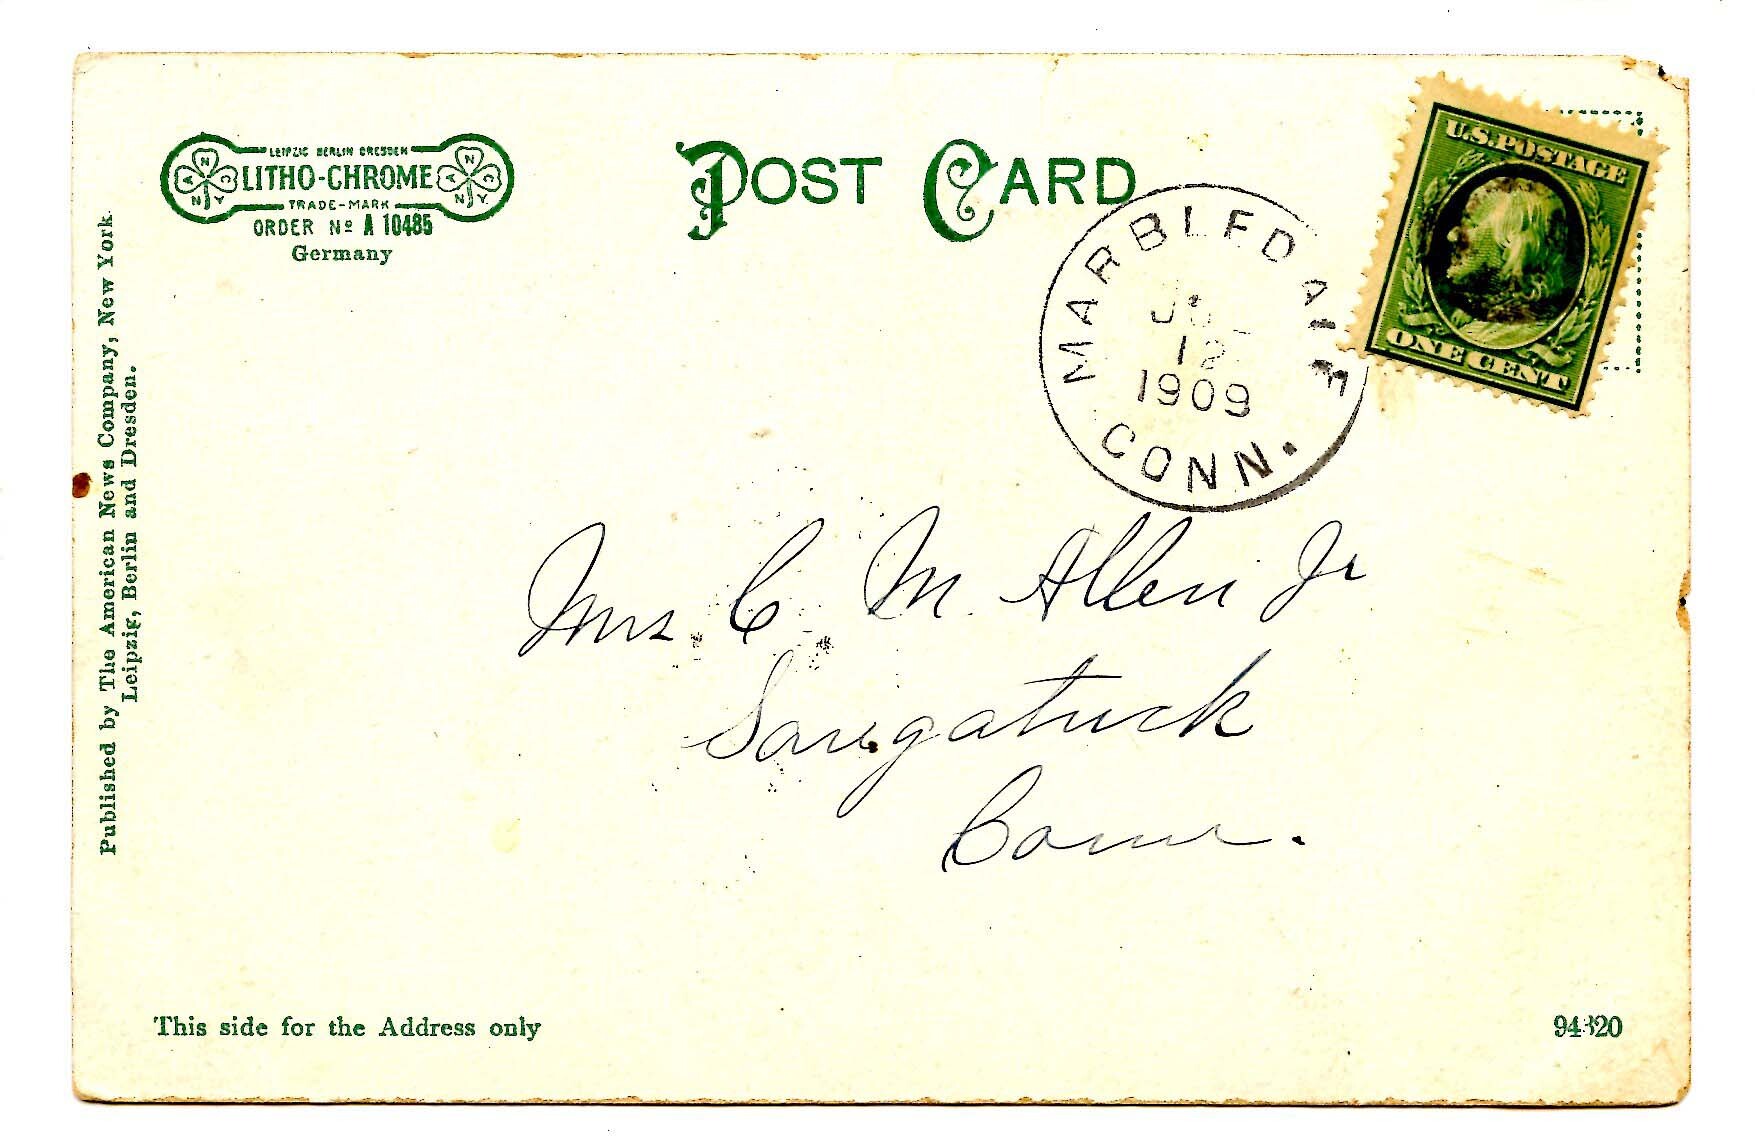 LEIPZIG BERLIN DRESDEN
LITHO-CHROME
TRADE-MARK
ORDER Nº A 10485
Germany
POST CARD
U.S. POSTAGE
ONE CENT
MARBLEDALE
12
1909
CONN.
Published by The American News Company, New York.
Leipzig, Berlin and Dresden.
Mrs. C. M. Allen Jr
Saugatuck
Conn.
This side for the Address only